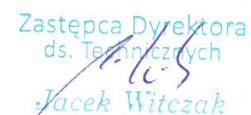 Zastępca Dyrektora
ds. Technicznych
Jacek Witczak